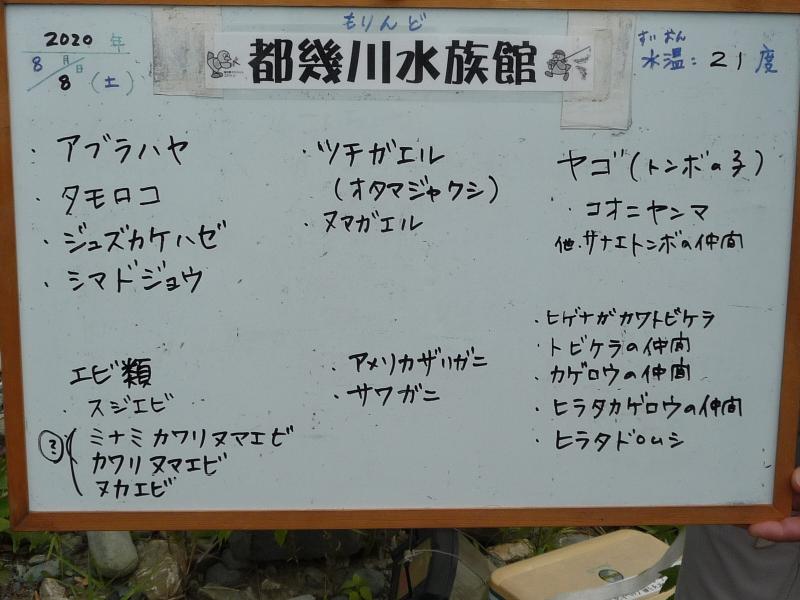 もりんど
都幾川水族館
2020年
8月8日(土)
すいおん
水温:21度
・アブラハヤ
・タモロコ
・ジュズカケハゼ
・シマドジョウ
・ツチガエル
(オタマジャクシ)
・ヌマガエル
ヤゴ(トンボの子)
・コオニヤンマ
他、サナエトンボの仲間
エビ類
・スジエビ
?(ミナミカワリヌマエビ
カワリヌマエビ
ヌカエビ
・アメリカザリガニ
・サワガニ
・ヒゲナガカワトビケラ
・トビケラの仲間
・カゲロウの仲間
・ヒラタカゲロウの仲間
・ヒラタドロムシ